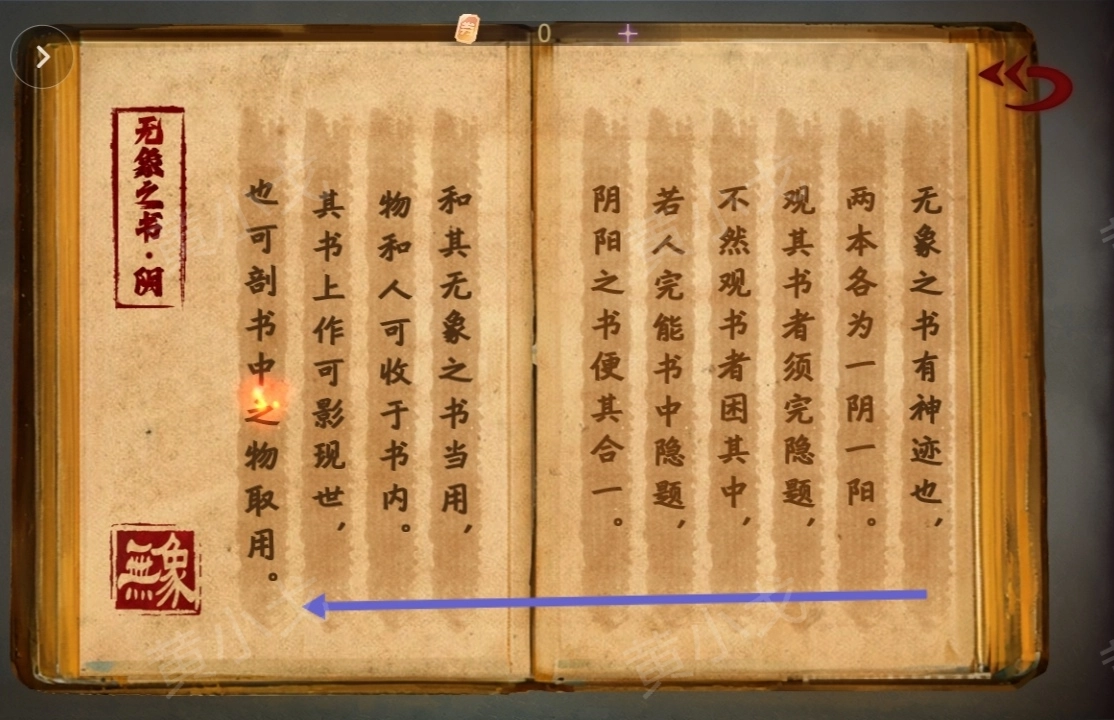 0
无象之书有神迹也，
两本各为一阴一阳。
观其书者须完隐题，
不然观书者困其中，
若人完能书中隐题，
阴阳之书便其合一。
和其无象之书当用，
物和人可收于书内。
其书上作可影现世，
也可剖书中之物取用。
无象之书·阴
無象